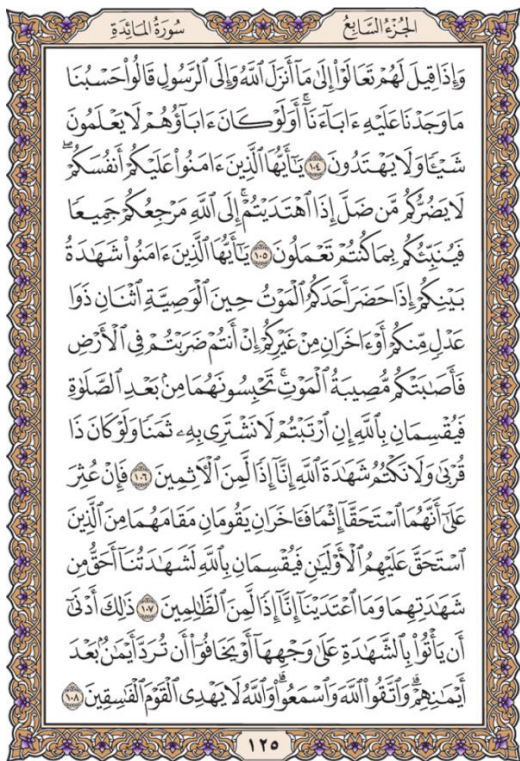 الجزء السابع سورة المائدة
وَإِذَا قِيلَ لَهُمْ تَعَالَوْا۟ إِلَىٰ مَآ أَنزَلَ ٱللَّهُ وَإِلَى ٱلرَّسُولِ قَالُوا۟ حَسْبُنَا
مَا وَجَدْنَا عَلَيْهِ ءَابَآءَنَآ ۚ أَوَلَوْ كَانَ ءَابَآؤُهُمْ لَا يَعْلَمُونَ
شَيْـًٔا وَلَا يَهْتَدُونَ ١٠٤ يَـٰٓأَيُّهَا ٱلَّذِينَ ءَامَنُوا۟ عَلَيْكُمْ أَنفُسَكُمْ ۖ
لَا يَضُرُّكُم مَّن ضَلَّ إِذَا ٱهْتَدَيْتُمْ ۚ إِلَى ٱللَّهِ مَرْجِعُكُمْ جَمِيعًا
فَيُنَبِّئُكُم بِمَا كُنتُمْ تَعْمَلُونَ ١٠٥ يَـٰٓأَيُّهَا ٱلَّذِينَ ءَامَنُوا۟ شَهَـٰدَةُ
بَيْنِكُمْ إِذَا حَضَرَ أَحَدَكُمُ ٱلْمَوْتُ حِينَ ٱلْوَصِيَّةِ ٱثْنَانِ ذَوَا
عَدْلٍ مِّنكُمْ أَوْ ءَاخَرَانِ مِنْ غَيْرِكُمْ إِنْ أَنتُمْ ضَرَبْتُمْ فِى ٱلْأَرْضِ
فَأَصَـٰبَتْكُم مُّصِيبَةُ ٱلْمَوْتِ ۚ تَحْبِسُونَهُمَا مِنۢ بَعْدِ ٱلصَّلَوٰةِ
فَيُقْسِمَانِ بِٱللَّهِ إِنِ ٱرْتَبْتُمْ لَا نَشْتَرِى بِهِۦ ثَمَنًا وَلَوْ كَانَ ذَا
قُرْبَىٰ ۙ وَلَا نَكْتُمُ شَهَـٰدَةَ ٱللَّهِ إِنَّآ إِذًا لَّمِنَ ٱلْـَٔاثِمِينَ ١٠٦ فَإِنْ عُثِرَ
عَلَىٰٓ أَنَّهُمَا ٱسْتَحَقَّآ إِثْمًا فَـَٔاخَرَانِ يَقُومَانِ مَقَامَهُمَا مِنَ ٱلَّذِينَ
ٱسْتَحَقَّ عَلَيْهِمُ ٱلْأَوْلَيَـٰنِ فَيُقْسِمَانِ بِٱللَّهِ لَشَهَـٰدَتُنَآ أَحَقُّ مِن
شَهَـٰدَتِهِمَا وَمَا ٱعْتَدَيْنَآ إِنَّآ إِذًا لَّمِنَ ٱلظَّـٰلِمِينَ ١٠٧ ذَٰلِكَ أَدْنَىٰٓ
أَن يَأْتُوا۟ بِٱلشَّهَـٰدَةِ عَلَىٰ وَجْهِهَآ أَوْ يَخَافُوٓا۟ أَن تُرَدَّ أَيْمَـٰنٌۢ بَعْدَ
أَيْمَـٰنِهِمْ ۗ وَٱتَّقُوا۟ ٱللَّهَ وَٱسْمَعُوا۟ ۗ وَٱللَّهُ لَا يَهْدِى ٱلْقَوْمَ ٱلْفَـٰسِقِينَ ١٠٨
١٢٥